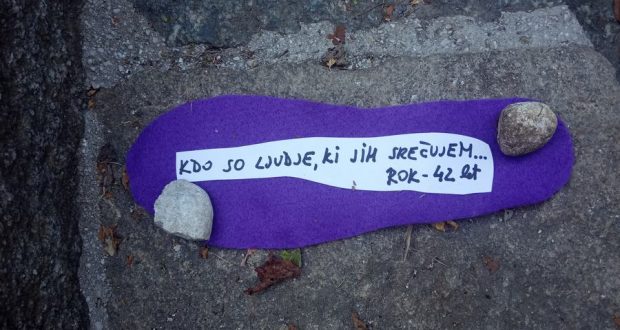 KDO SO LJUDJE, KI JIH SREČUJEM...
ROK - 42 let